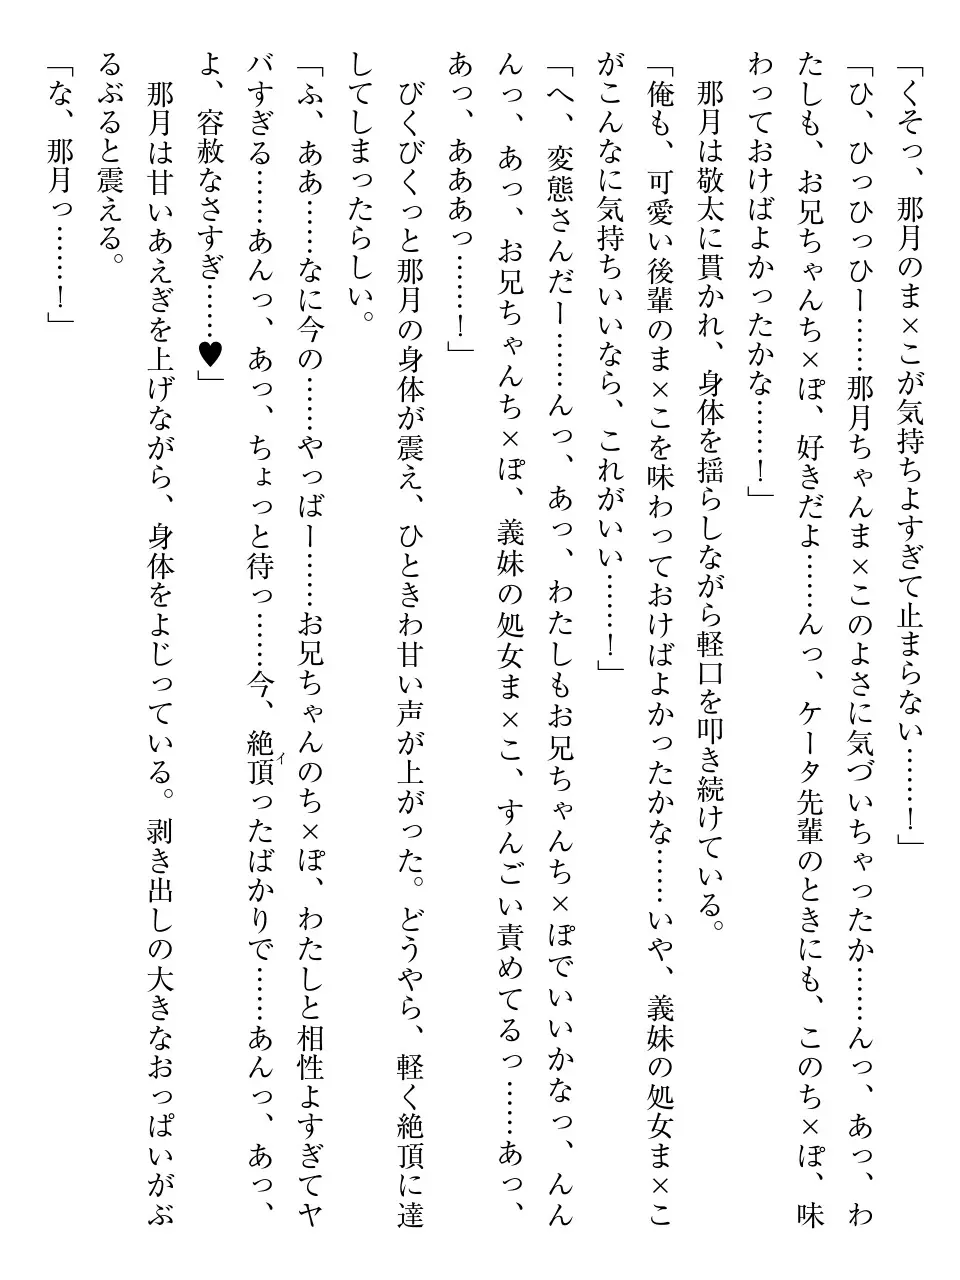 「くそっ、那月のま×こが気持ちよすぎて止まらない……！」
「ひ、ひっひっひー……那月ちゃんま×このよさに気づいちゃったか……んっ、あっ、わ
たしも、お兄ちゃんち×ぽ、好きだよ……んっ、ケータ先輩のときにも、このち×ぽ、味
わっておけばよかったかな……！」
那月は敬太に貫かれ、身体を揺らしながら軽口を叩き続けている。
「俺も、可愛い後輩のま×こを味わっておけばよかったかな……いや、義妹の処女ま×こ
がこんなに気持ちいいなら、これがいい……！」
「へ、変態さんだー……んっ、あっ、わたしもお兄ちゃんち×ぽでいいかなっ、んん
んっ、あっ、お兄ちゃんち×ぽ、義妹の処女ま×こ、すんごい責めてるっ……あっ、
あっ、あああっ……！」
びくびくっと那月の身体が震え、ひときわ甘い声が上がった。どうやら、軽く絶頂に達
してしまったらしい。
「ふ、ああ……なに今の……やっばー……お兄ちゃんのち×ぽ、わたしと相性よすぎてヤ
バすぎる……あんっ、あっ、ちょっと待っ……今、絶頂イったばかりで……あんっ、あっ、
よ、容赦なさすぎ……♥」
那月は甘いあえぎを上げながら、身体をよじっている。剥き出しの大きなおっぱいがぶ
るぶると震える。
「な、那月っ……！」